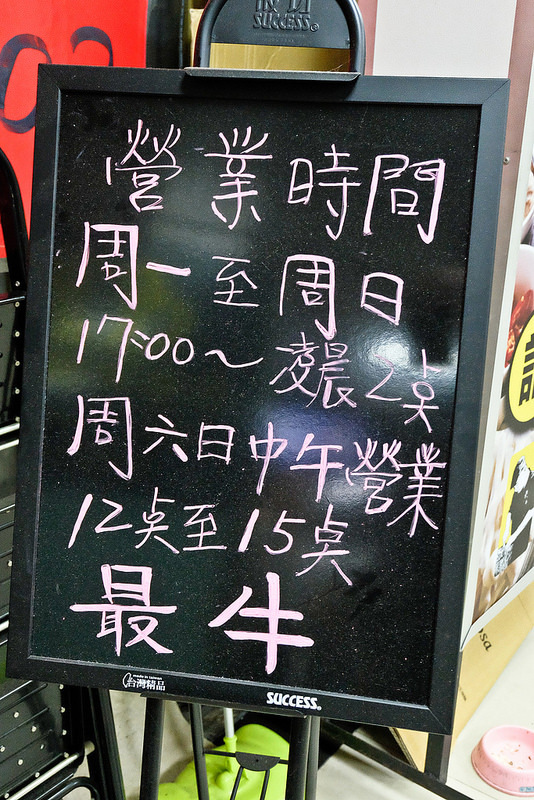 SUCCESS®
營業時間
周一至周日
17:00～凌晨2点
周六日中午營業
12点至15点
最牛
made in taiwan
台灣精品
SUCCESS®